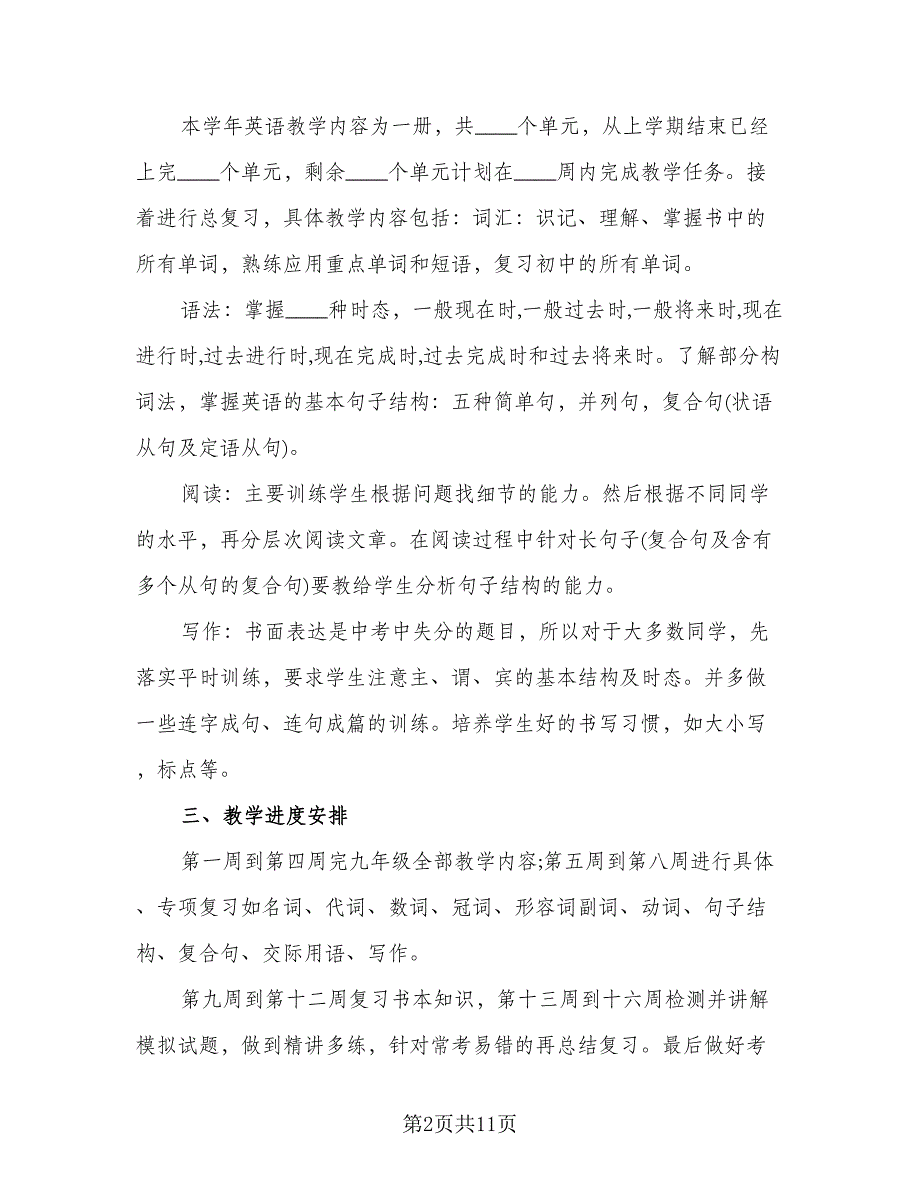 本学年英语教学内容为一册，共____个单元，从上学期结束已经
上完____个单元，剩余____个单元计划在____周内完成教学任务。接
着进行总复习，具体教学内容包括：词汇：识记、理解、掌握书中的
所有单词，熟练应用重点单词和短语，复习初中的所有单词。
语法：掌握____种时态，一般现在时,一般过去时,一般将来时,现在
进行时,过去进行时,现在完成时,过去完成时和过去将来时。了解部分构
词法，掌握英语的基本句子结构：五种简单句，并列句，复合句(状语
从句及定语从句)。
阅读：主要训练学生根据问题找细节的能力。然后根据不同同学
的水平，再分层次阅读文章。在阅读过程中针对长句子(复合句及含有
多个从句的复合句)要教给学生分析句子结构的能力。
写作：书面表达是中考中失分的题目，所以对于大多数同学，先
落实平时训练，要求学生注意主、谓、宾的基本结构及时态。并多做
一些连字成句、连句成篇的训练。培养学生好的书写习惯，如大小写
，标点等。
三、教学进度安排
第一周到第四周完九年级全部教学内容;第五周到第八周进行具体
、专项复习如名词、代词、数词、冠词、形容词副词、动词、句子结
构、复合句、交际用语、写作。
第九周到第十二周复习书本知识，第十三周到十六周检测并讲解
模拟试题，做到精讲多练，针对常考易错的再总结复习。最后做好考
第2页共11页